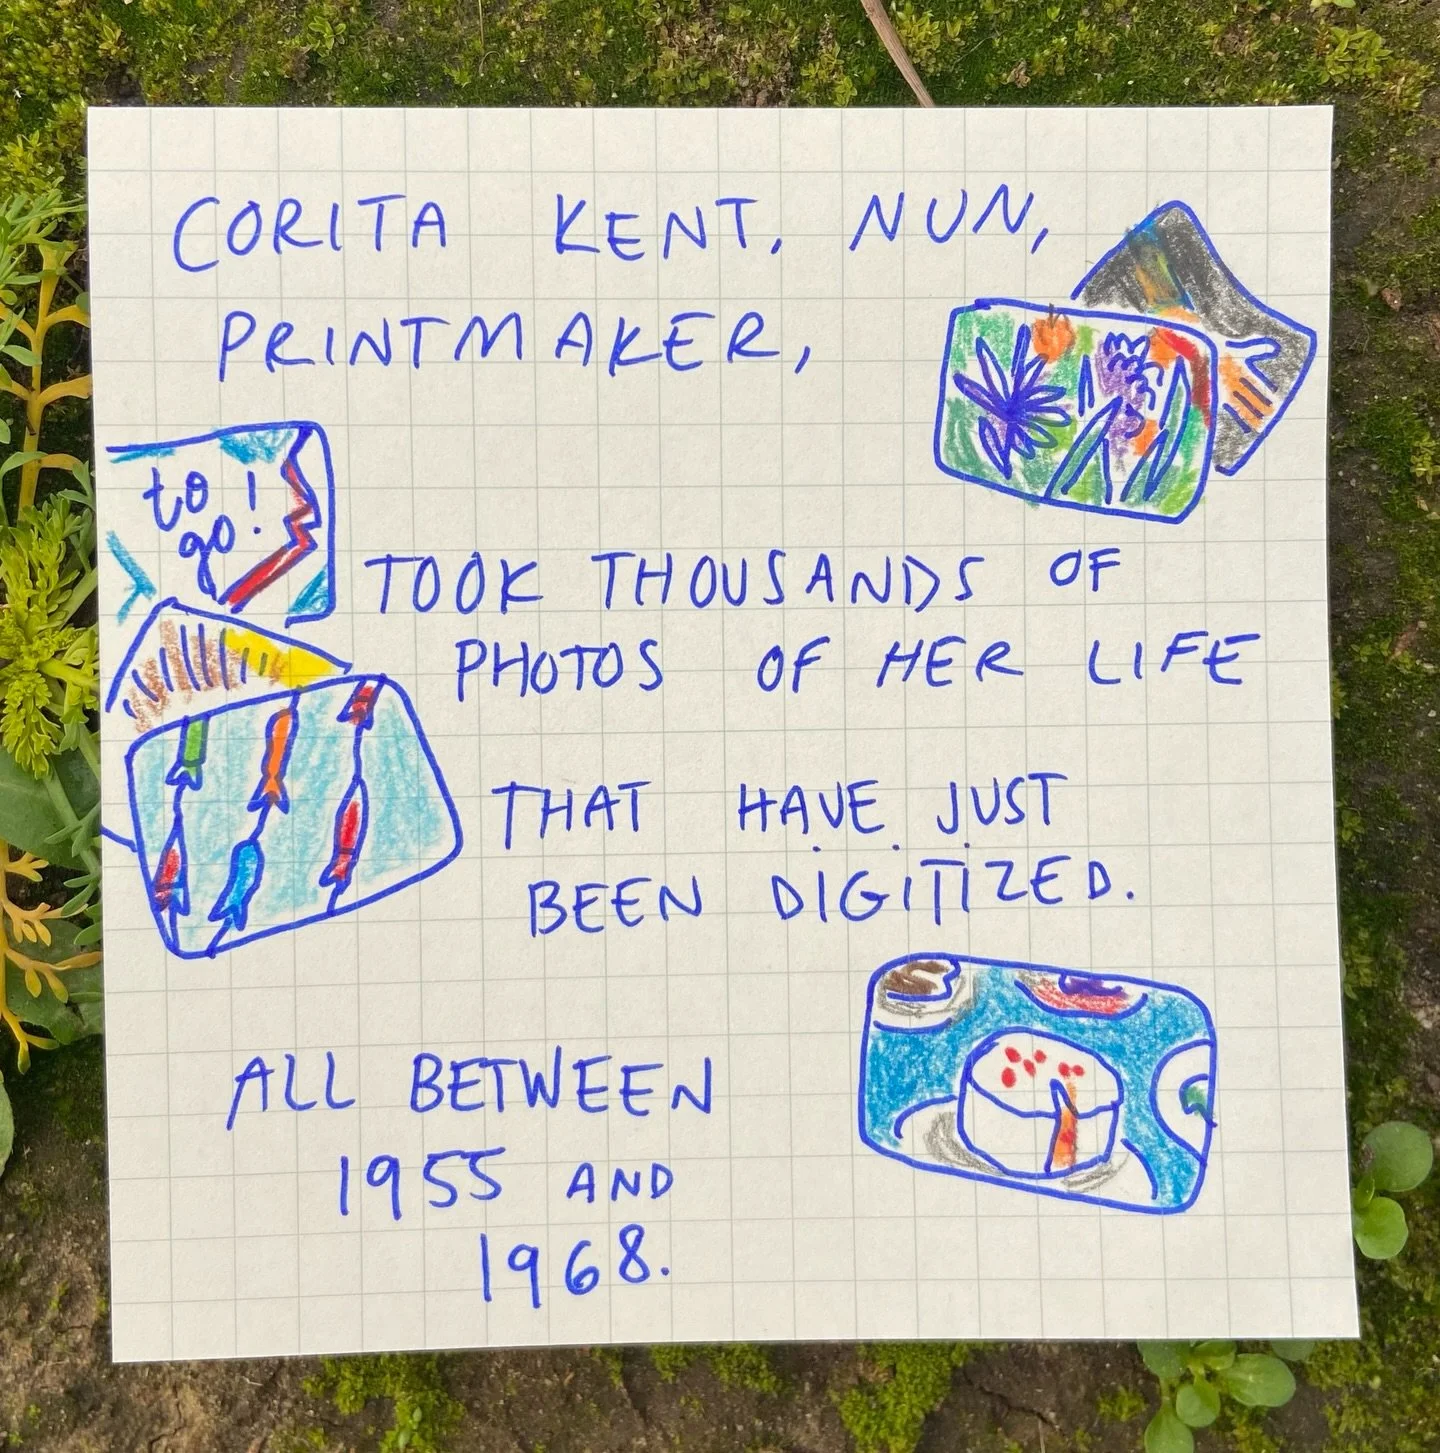 CORITA KENT, NUN,
PRINTMAKER,
to
go!
TOOK THOUSANDS OF
PHOTOS OF HER LIFE
THAT HAVE JUST
BEEN DIGITIZED.
ALL BETWEEN
1955 AND
1968.